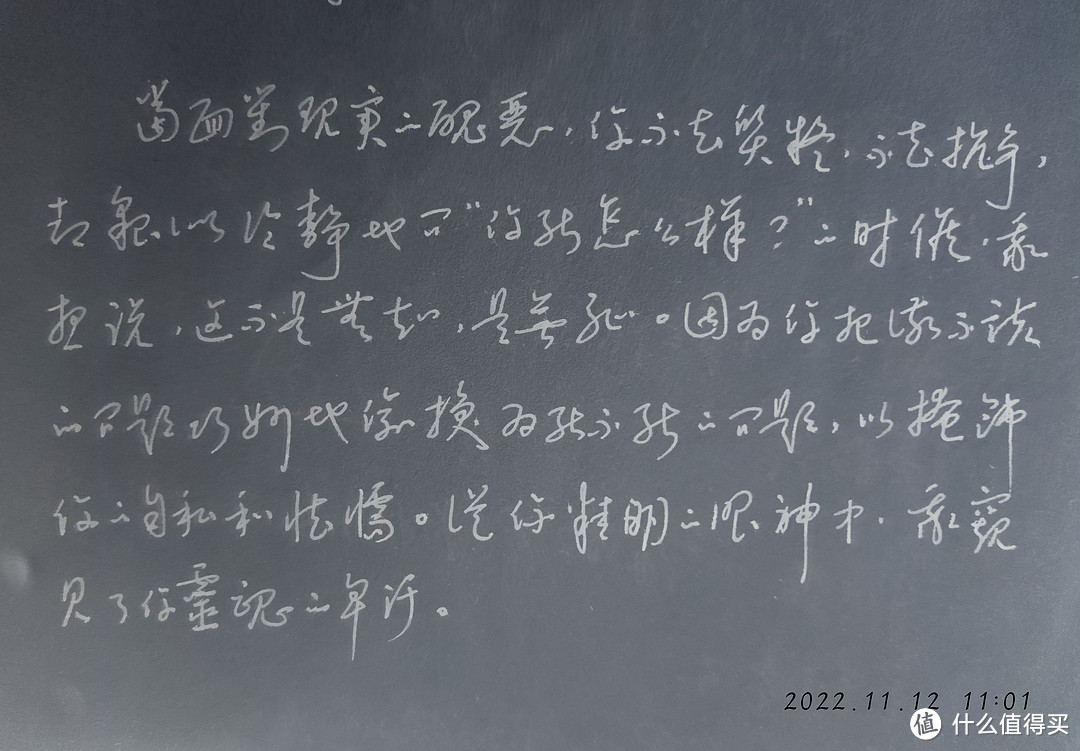 當面對现实的醜恶，你不去质疑，不去抗争，
却親以冷静地问“你能怎么样？”的时候，我
想说，这不是無知，是無耻。因为你把该不该
的问题巧妙地偷换为能不能的问题，以掩饰
你的自私和怯懦。從你精明的眼神中，我窺
见了你靈魂的卑污。
2022.11.12 11:01
值 什么值得买